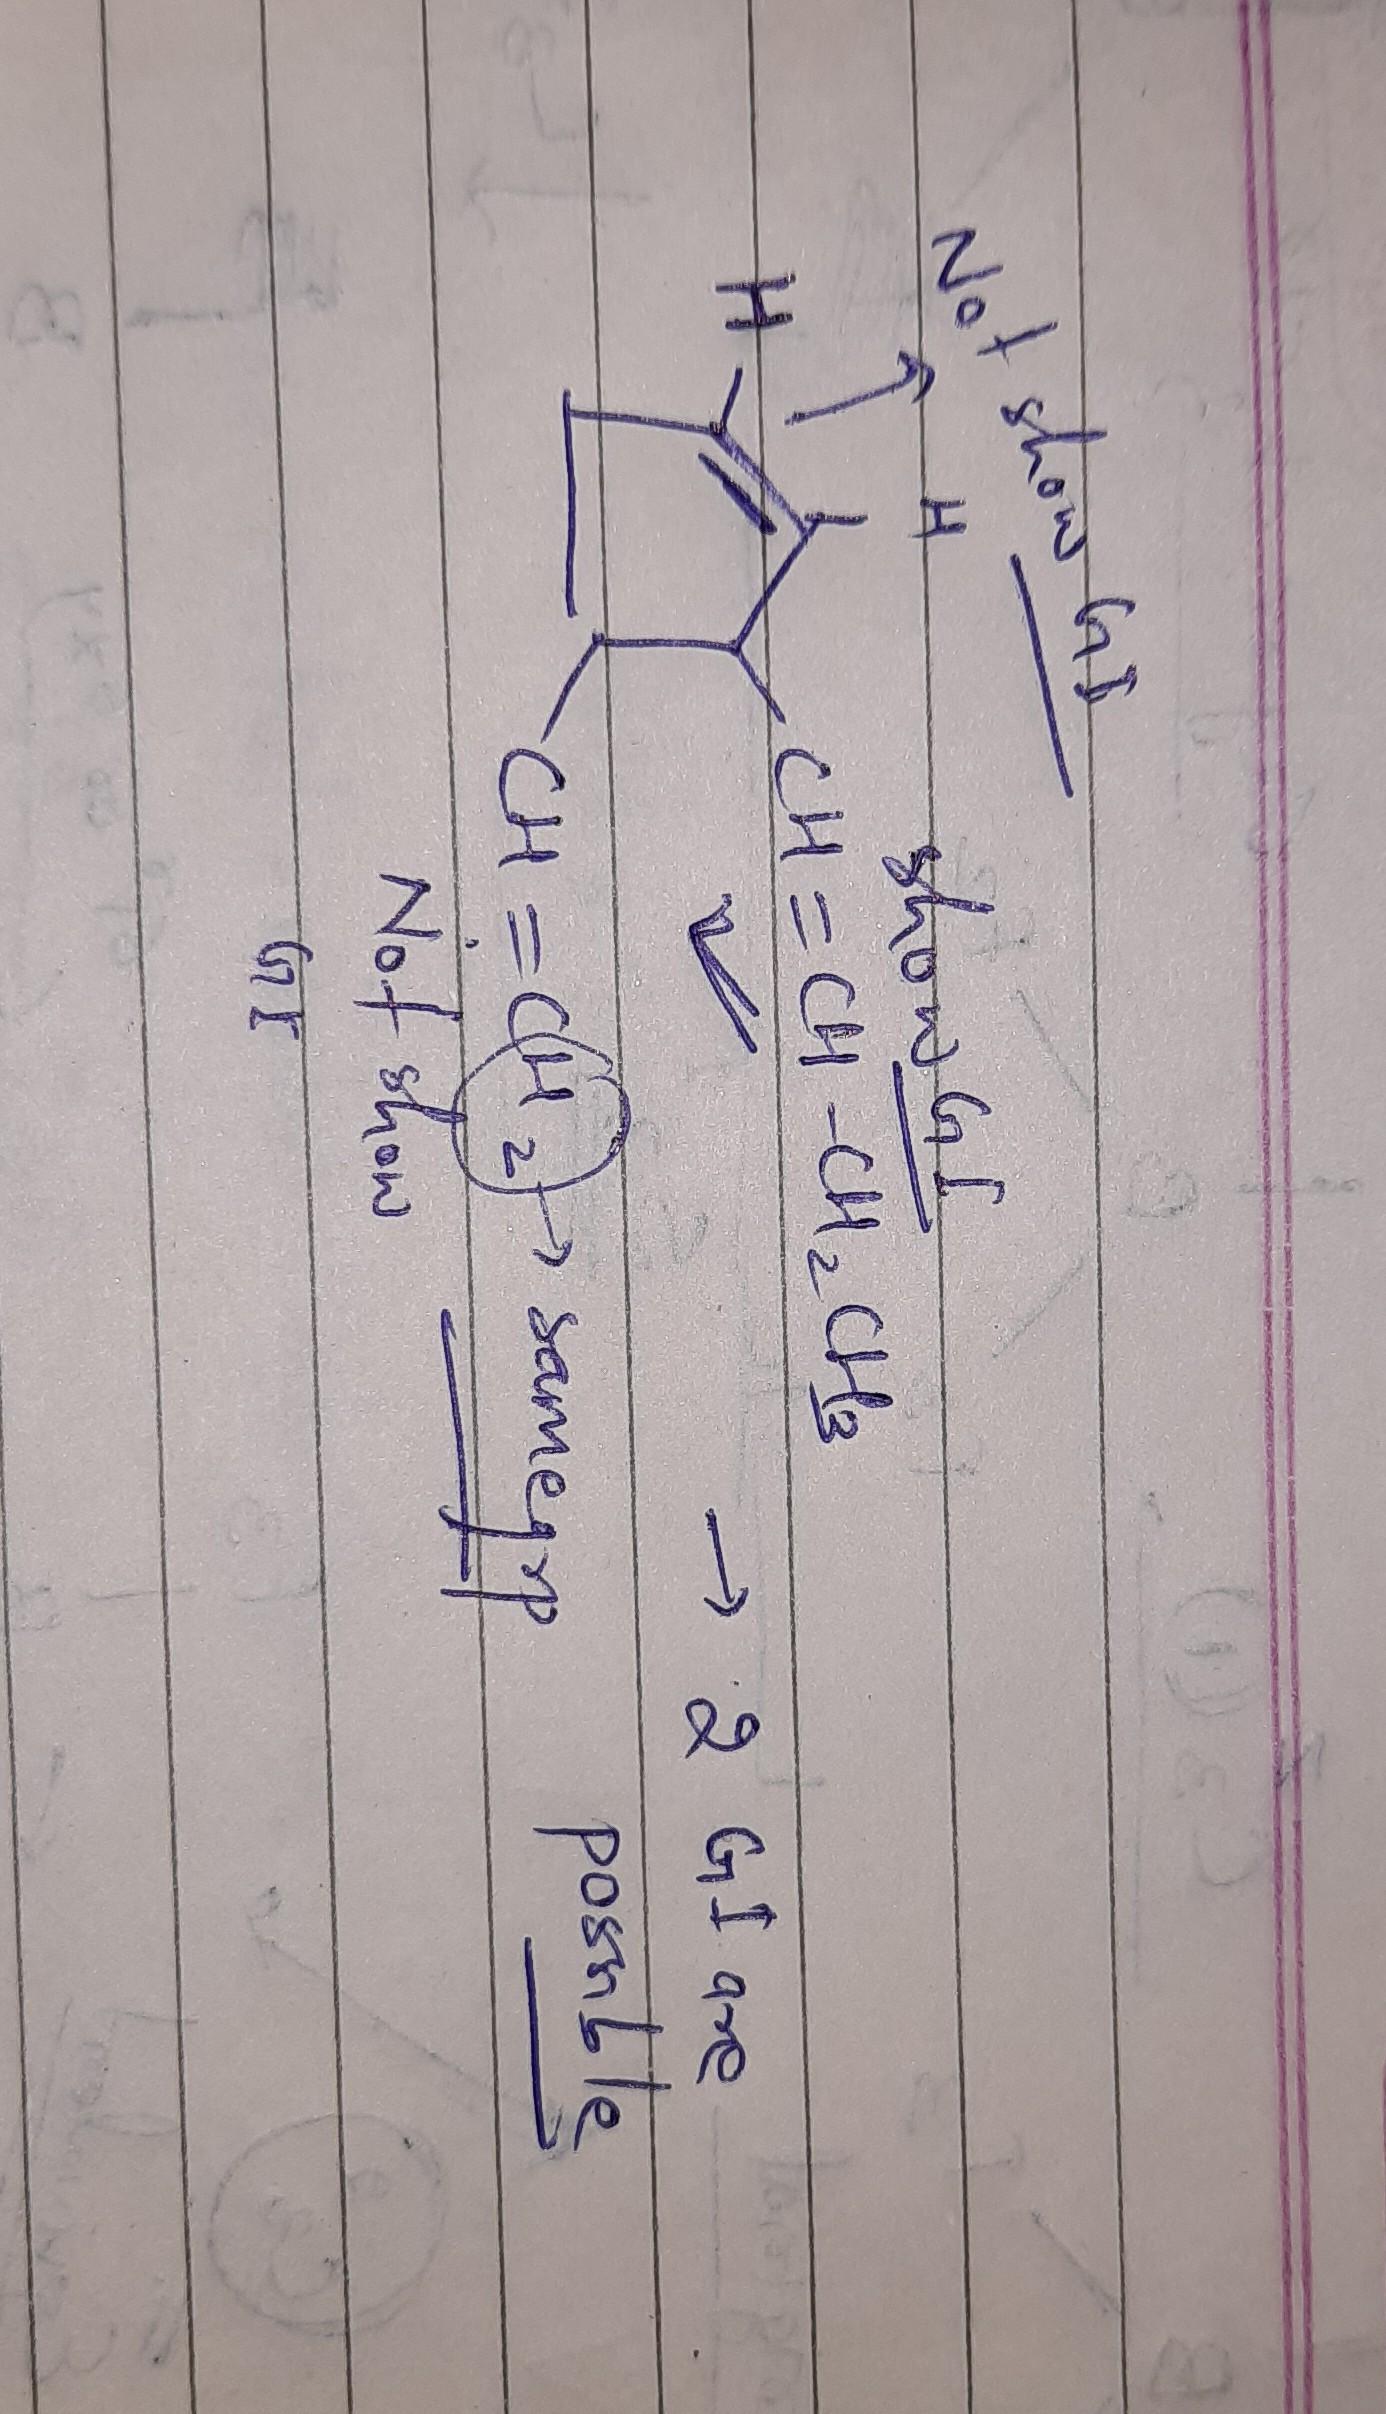 Not show GI
H
H
show GI
CH=CH-CH2CH3
→ 2 GI are
possible
CH=CH2 → same grp
Not show
GI